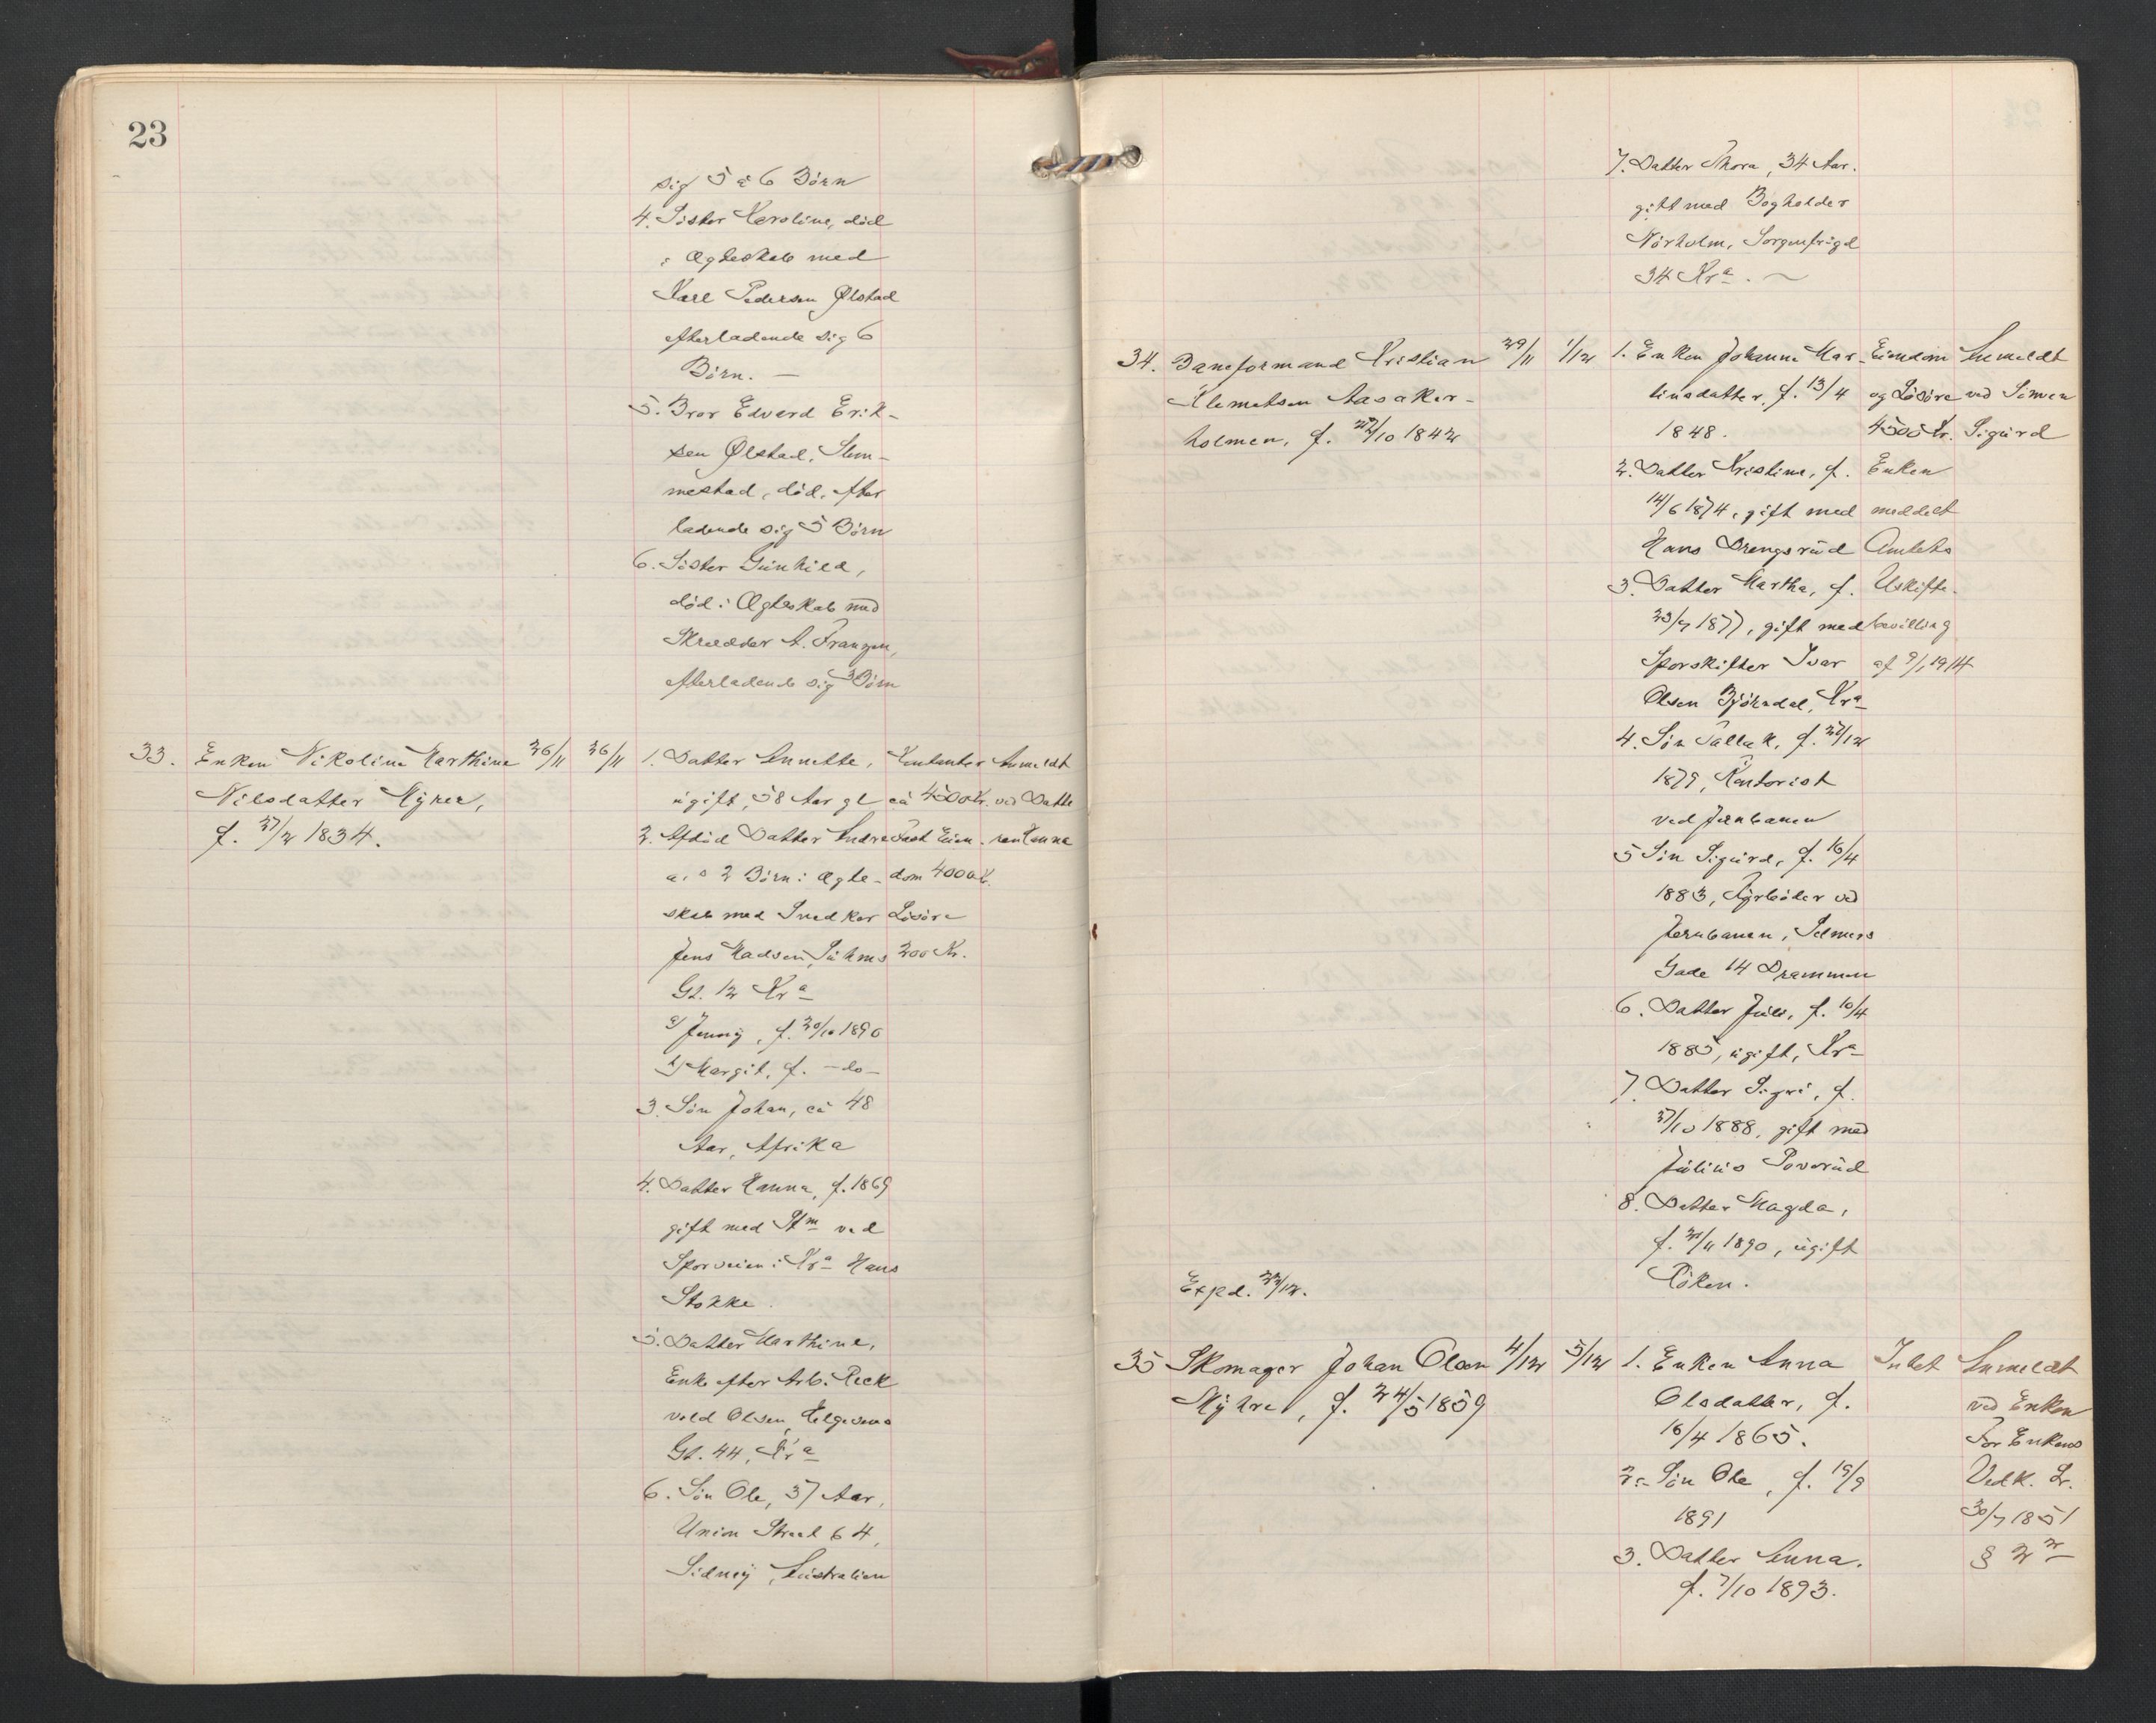 23
sig 5 à 6 Börn
4. Söster Karoline, död
i Ægteskab med
Karl Pedersen Ølstad
efterladende sig 6
Börn. —
5. Bror Edvard Erik-
sen Ølstad, Slem-
mestad, död, efter
ladende sig 5 Börn
6. Söster Gunhild,
död i Ægteskab med
Skrædder A. Franzen,
efterladende sig 3 Börn
33. Enken Nikoline Marthine 26/11 26/11 1. Datter Annette, Kontanter Anmeldt
Nilsdatter Myhre, ugift, 58 Aar gl ca 4500 Kr. ved Datte
f. 27/2 1834. 2. Afdöd Datter Andrea Fast Eien- ren Hanna
2 Börn i Ægte- dom 4000 K.
skab med Snedker Lösöre
Jens Madsen, Suhms 200 Kr.
Gt. 12 Kra
a/ Jenny, f. 20/10 1890
b/ Margit, f. -do-
3. Sön Johan, ca 48
Aar, Afrika
4. Datter Hanna, f. 1869
gift med Stm ved
Sporveien i Kra Hans
Stokke.
5. Datter Marthine,
Enke efter Arb. Reck
vold Olsen, Helgesens
Gt. 44, Kra
6. Sön Ole, 37 Aar,
Union Street 64,
Sidney, Australien
7. Datter Thora, 34 Aar.
gift med Bogholder
Nörholm, Sorgenfrigd
34 Kra. ~
34. Baneformand Kristian 29/11 1/12 1. Enken Johanne Mar- Eiendom Anmeldt
Klemetsen Aasaker- tinsdatter, f. 13/4 og Lösöre ved Sönnen
holmen, f. 22/10 1842 1848. 4500 Kr. Sigurd
2. Datter Kristine, f. Enken
14/6 1874, gift med meddelt
Hans Drengsrud Amtets
3. Datter Martha, f. Uskifte-
23/7 1877, gift med bevilling
Sporskifter Ivar af 9/1 1914
Olsen Björndal, Kra
4. Sön Tallak, f. 27/12
1879, Kontorist
ved Jernbanen
5 Sön Sigurd, f. 16/4
1883, Fyrböder ved
Jernbanen, Selmers
Gade 14 Drammen
6. Datter Juli, f. 10/4
1885, ugift, Kra
7. Datter Sigri, f.
27/10 1888, gift med
Julius Poverud
8. Datter Magda,
f. 1890, ugift
Expd. 22/12. Röken.
35 Skomager Johan Olsen 4/12 5/12 1. Enken Anna Intet Anmeldt
Myhre, f. 24/5 1859 Olsdatter, f. ved Enken
16/4 1865. For Enkens
2. Sön Ole, f. 19/9 Vedk. Lr.
1891 30/7 1851
3. Datter Anna. § 2
f. 7/10 1893.